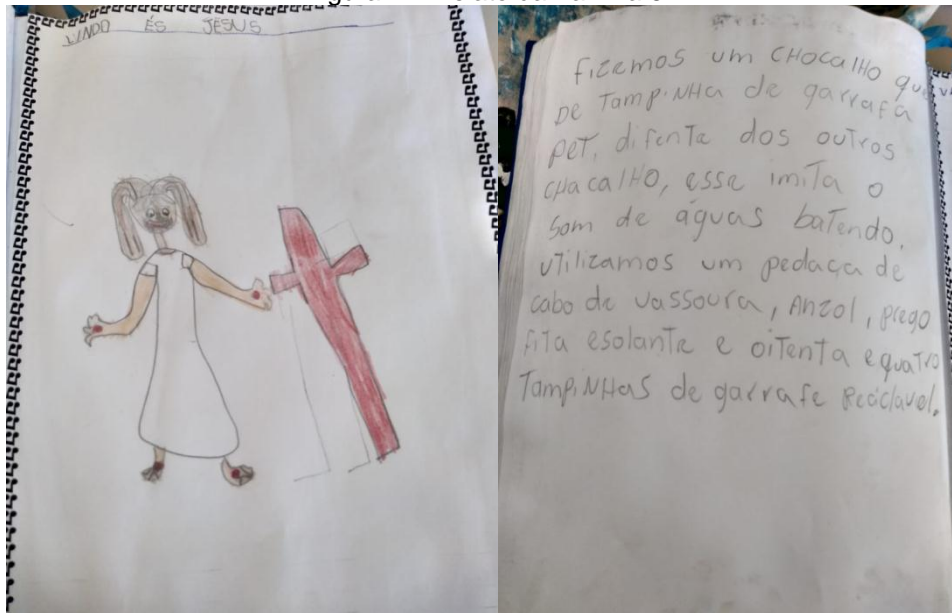 LINDO ÉS JESUS
fizemos um CHOCALHO que
DE TAMPINHA de garrafa
PET, difente dos outros
CHACALHO, esse imita o
som de águas batendo.
UTilizamos um pedaça de
cabo de vassoura, ANZOL, prego
fita esolante e oitenta e quatro
TAMPINHAS de garrafe Reciclavel.